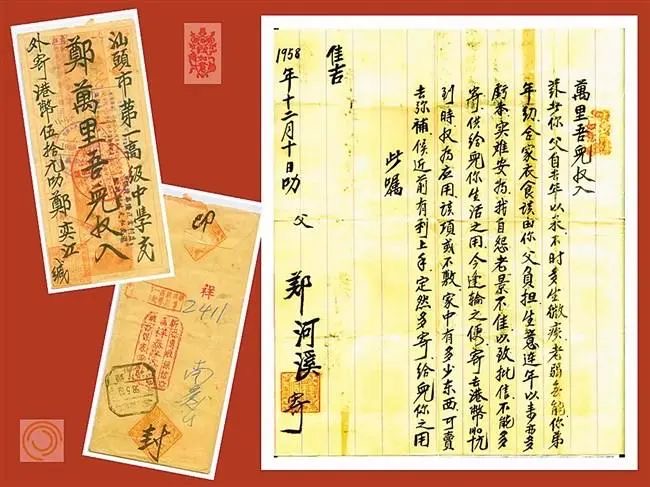 汕頭市第一高級中學交
鄭萬里吾兒收入
外寄港幣伍拾元叻鄭奕江緘
祥
2411
封
萬里吾兒收入
你父自去年以来不时多生微疾老弱無能你弟
年幼合家衣食該由你父負担生意連年以来多
虧本实难安我自怨老景不佳以致批信不能多
寄供給兒你生活之用今逢輪之便寄去港幣元
到時收为应用該項或不敷家中有多少东西可賣
去弥補候近前有利上手定然多寄給兒你之用
此嘱
佳吉
1958年十二月十日叻 父 鄭河溪 寄